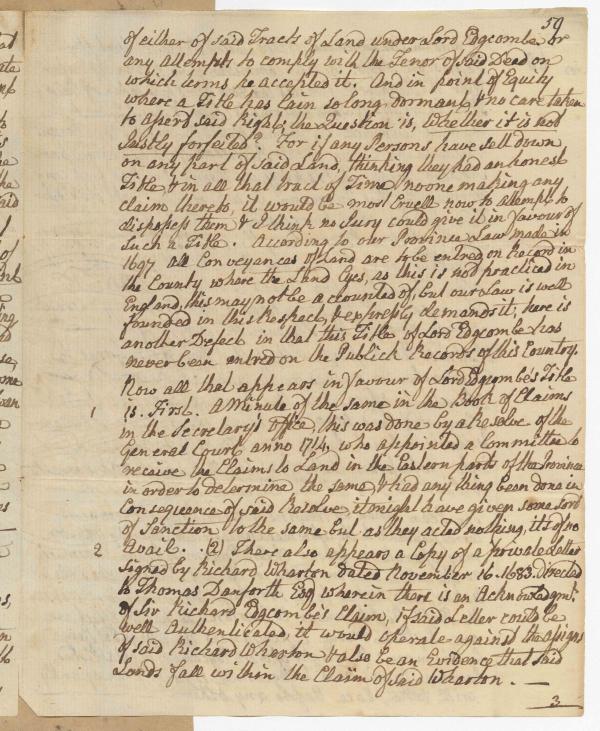 59
of either of said Tracts of Land under Lord Edgcombe or
any attempts to comply with the Tenor of said Deed on
which terms he accepted it. And in point of Equity
where a Title has lain so long dormant, & no care taken
to apert said Right, the Question is, Whether it is not
Justly forfeited. For if any Persons have sett down
on any part of said Land, thinking they had an honest
Title & in all that tract of Time, no one making any
claim thereto, it would be most cruell now to attempt to
disposess them & I think no Jury could give it in favour of
such a Title. According to our Province Law made in
1697 all Conveyances of Land are to be entred on Record in
the County where the Land lyes, as this is not practiced in
England, this may not be accounted of, but our Law is well
founded in this Respect, & expresly demands it, here is
another Defect in that this Title of Lord Edgcombe has
never been entred on the Publick Records of this Country.
Now all that appears in favour of Lord Edgcombe's Title
1 is. First. A Minute of the same in the Book of Claims
in the Secretary's Office, this was done by a Resolve of the
General Court anno 1714, who appointed a Committee to
receive the Claims to Land in the Eastern parts of the Province
in order to determine the same, & had any thing been done in
Consequence of said Resolve, it might have given some sort
of Sanction to the same but as they acted nothing, it's of no
2 Avail. (2) There also appears a Copy of a private Letter
signed by Richard Wharton dated November 16. 1683. Directed
to Thomas Danforth Esq wherein there is an Acknowledgmt.
of Sir Richard Edgcombe's Claim, if said Letter could be
well Authenticated, it would operate against the assigns
of said Richard Wharton & also be an Evidence that said
Lands fall within the Claim of said Wharton. —
3